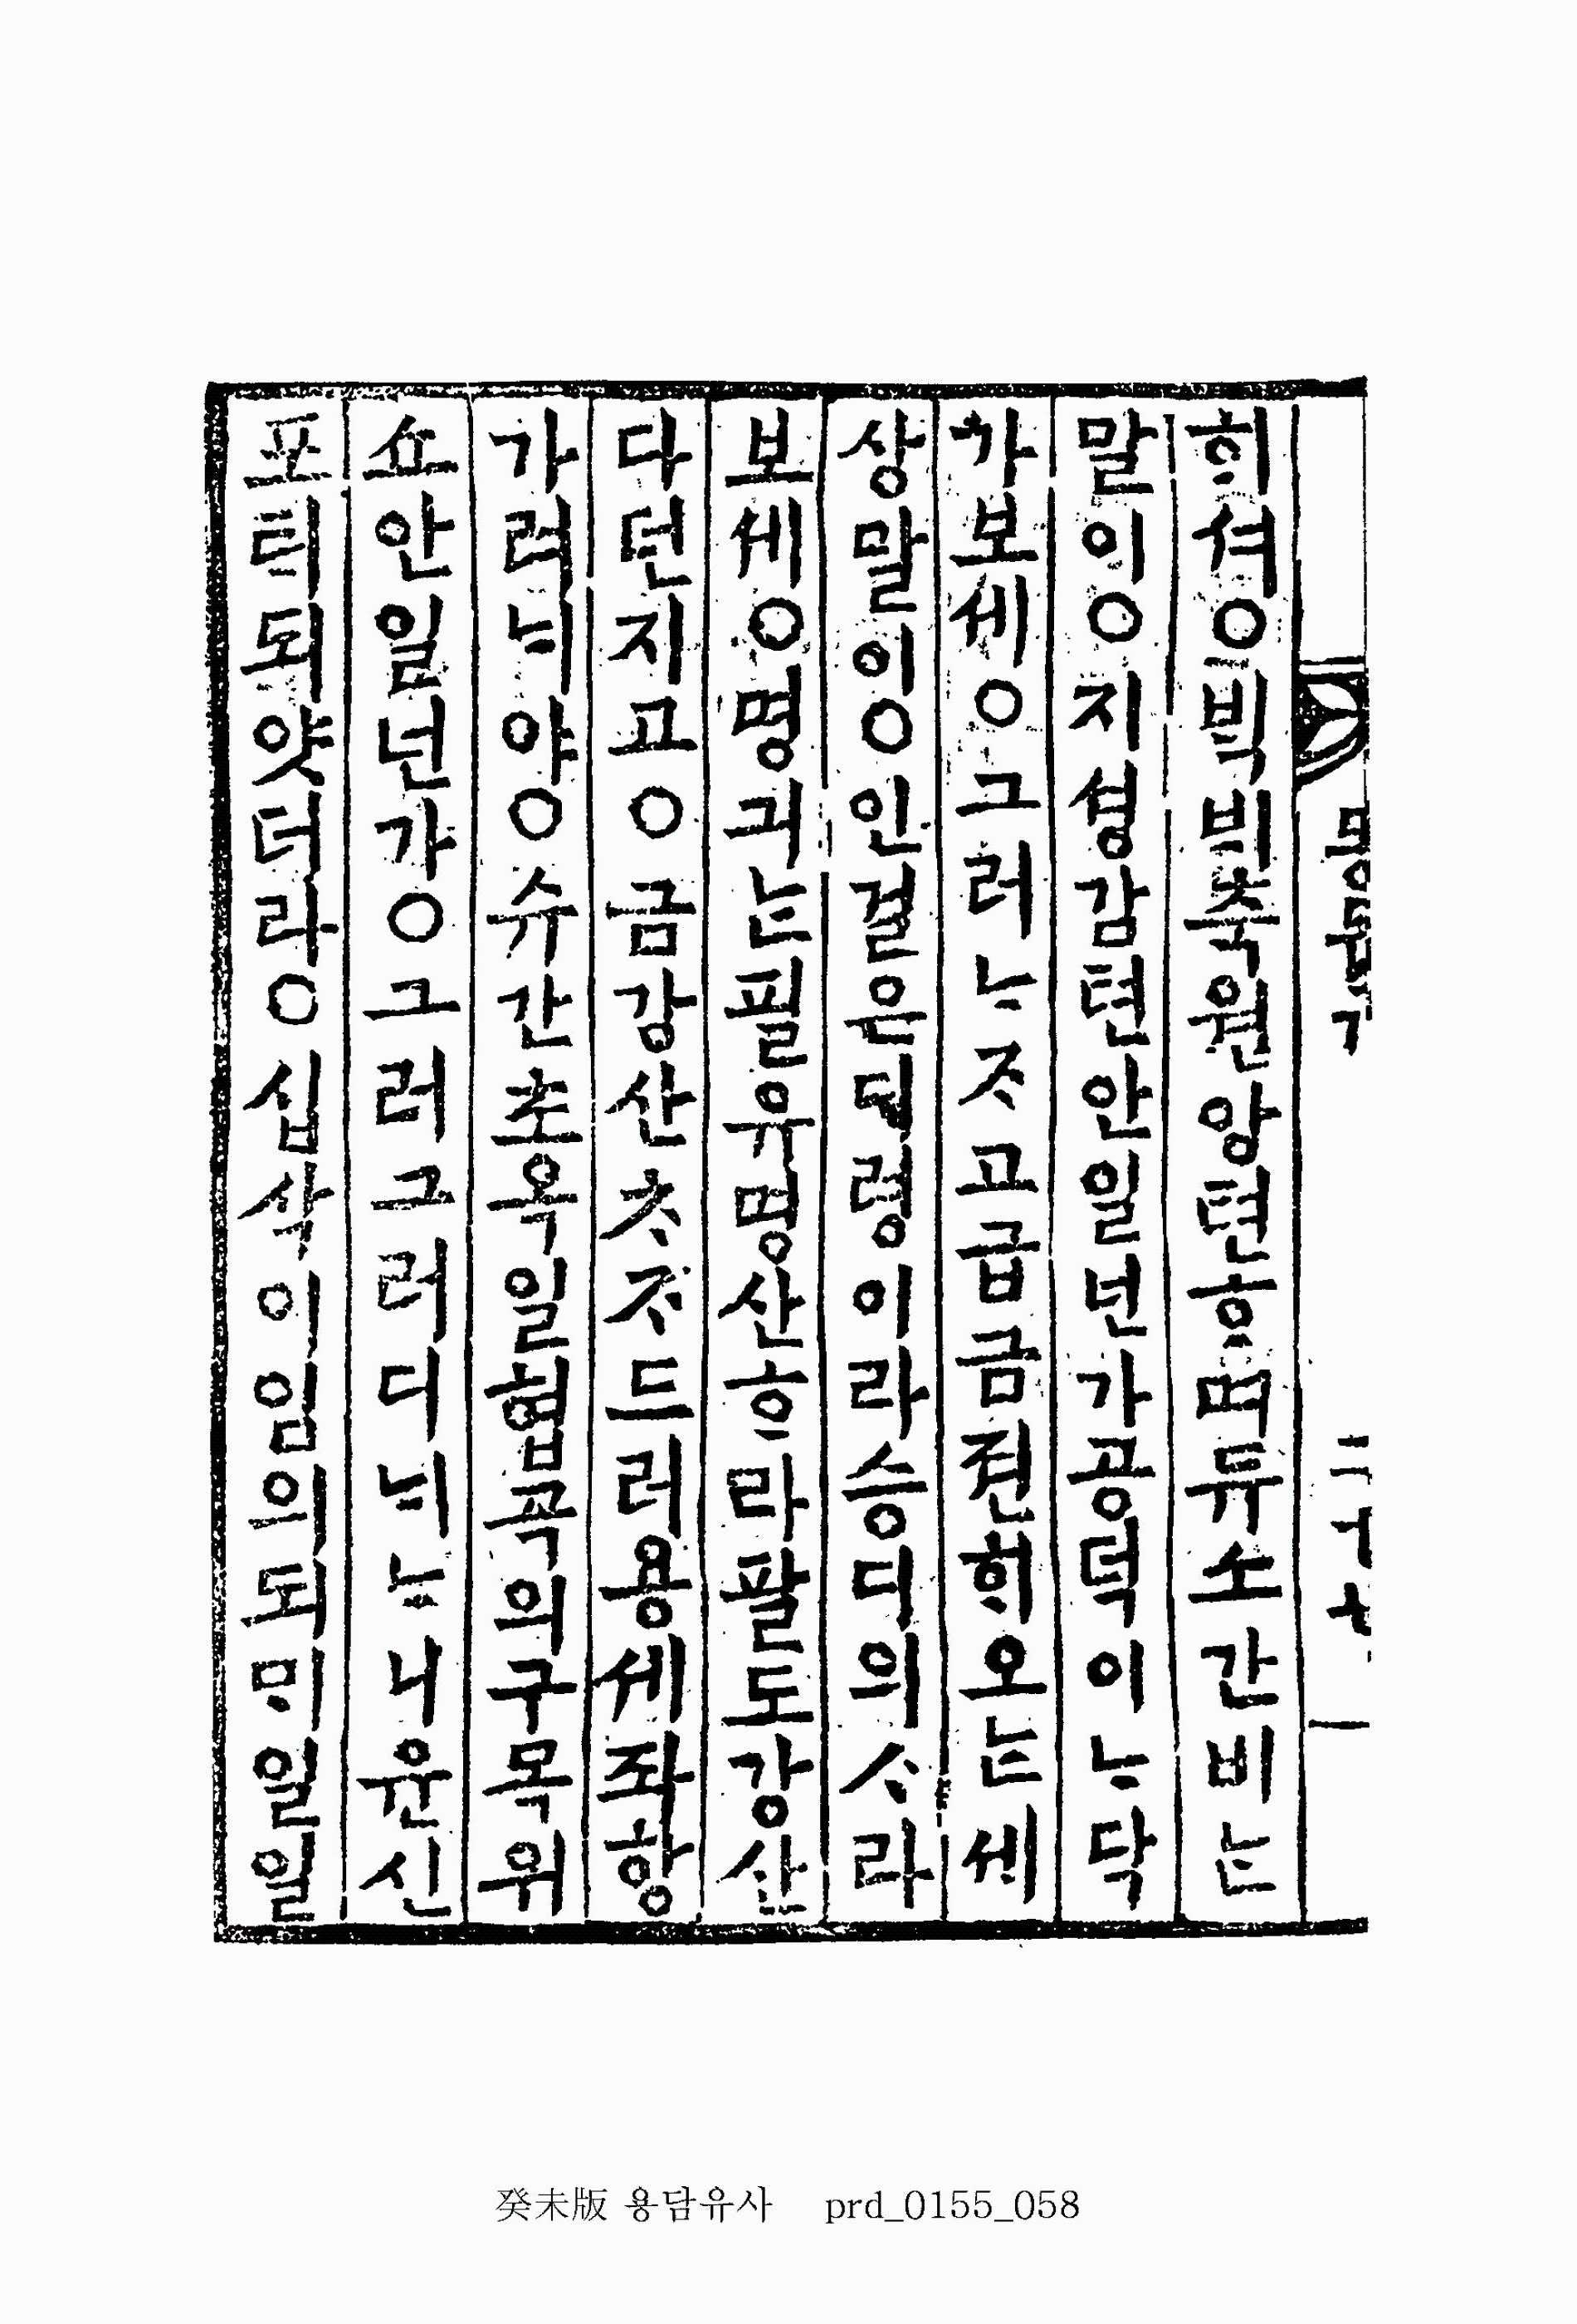 ᄒᆡ셔○ᄇᆡᆨᄇᆡ축원앙텬ᄒᆞ며듀소간비ᄂᆞᆫ
말이○지셩감텬안일넌가공덕이ᄂᆞ닥
가보세○그러ᄂᆞᄌᆞ고급금젼ᄒᆡ오ᄂᆞᆫ세
상말이○인걸은령이라승디의ᄉᆞ라
보세○명긔ᄂᆞᆫ필유명산ᄒᆞ라팔도강산
다던지고○금강산ᄎᆞᄌᆞ드러용세좌항
가려ᄂᆡ야○슈간초옥일협곡의구목위
쇼안일넌가○그러그러디ᄂᆡᄂᆞ니윤신
포ᄐᆡ되얏더라○십삭이임의되ᄆᆡ일일
癸未版 용담유사 prd_0155_058